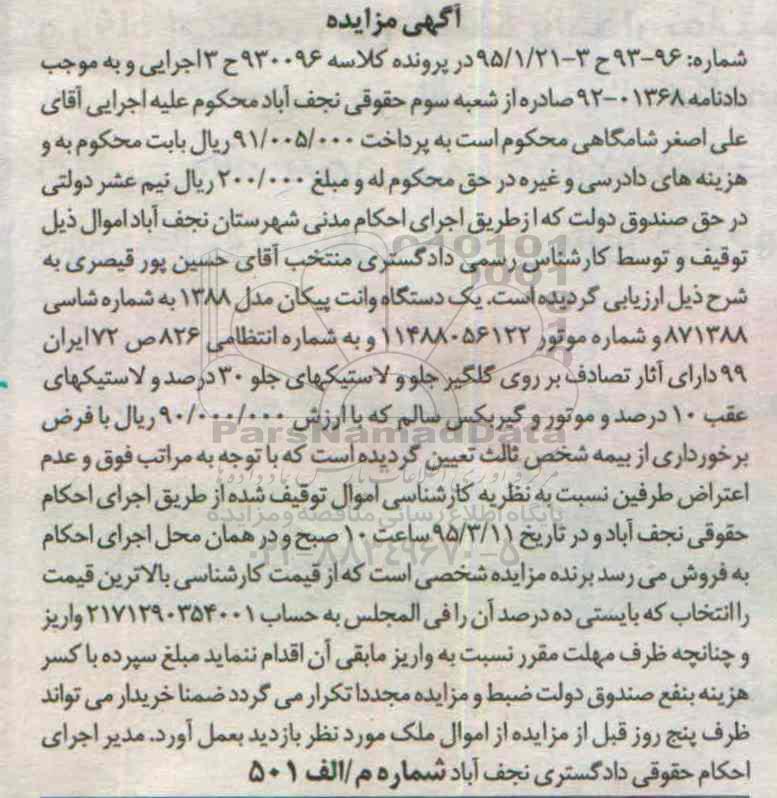 آگهی مزایده
شماره: ۹۶-۹۳ح ۳-۹۵/۱/۲۱ در پرونده کلاسه ۹۳۰۰۹۶ح ۳اجرایی و به موجب
دادنامه ۰۱۳۶۸-۹۲ صادره از شعبه سوم حقوقی نجف آباد محکوم علیه اجرایی آقای
علی اصغر شامگاهی محکوم است به پرداخت ۹۱/۰۰۵/۰۰۰ ریال بابت محکوم به و
هزینه های دادرسی و غیره در حق محکوم له و مبلغ ۲۰۰/۰۰۰ ریال نیم عشر دولتی
در حق صندوق دولت که ازطریق اجرای احکام مدنی شهرستان نجف آباد اموال ذیل
توقیف و توسط کارشناس رسمی دادگستری منتخب آقای حسین پور قیصری به
شرح ذیل ارزیابی گردیده است. یک دستگاه وانت پیکان مدل ۱۳۸۸ به شماره شاسی
۸۷۱۳۸۸ و شماره موتور ۱۱۴۸۸۰۵۶۱۲۲ و به شماره انتظامی ۸۲۶ص ۷۲ایران
۹۹ دارای آثار تصادف بر روی گلگیر جلو و لاستیکهای جلو ۳۰ درصد و لاستیکهای
عقب ۱۰ درصد و موتور و گیربکس سالم که با ارزش ۹۰/۰۰۰/۰۰۰ ریال با فرض
برخورداری از بیمه شخص ثالث تعیین گردیده است که با توجه به مراتب فوق و عدم
اعتراض طرفین نسبت به نظریه کارشناسی اموال توقیف شده از طریق اجرای احکام
حقوقی نجف آباد و در تاریخ ۹۵/۳/۱۱ ساعت ۱۰ صبح و در همان محل اجرای احکام
به فروش می رسد برنده مزایده شخصی است که از قیمت کارشناسی بالاترین قیمت
را انتخاب که بایستی ده درصد آن را فی المجلس به حساب ۲۱۷۱۲۹۰۳۵۴۰۰۱ واریز
و چنانچه ظرف مهلت مقرر نسبت به واریز مابقی آن اقدام ننماید مبلغ سپرده با کسر
هزینه بنفع صندوق دولت ضبط و مزایده مجددا تکرار می گردد ضمنا خریدار می تواند
ظرف پنج روز قبل از مزایده از اموال ملک مورد نظر بازدید بعمل آورد. مدیر اجرای
احکام حقوقی دادگستری نجف آباد شماره م/الف ۵۰۱
ParsNamadData
پایگاه اطلاع رسانی مناقصه و مزایده
۰۲۱-۸۸۳۴۹۶۷۰-۵